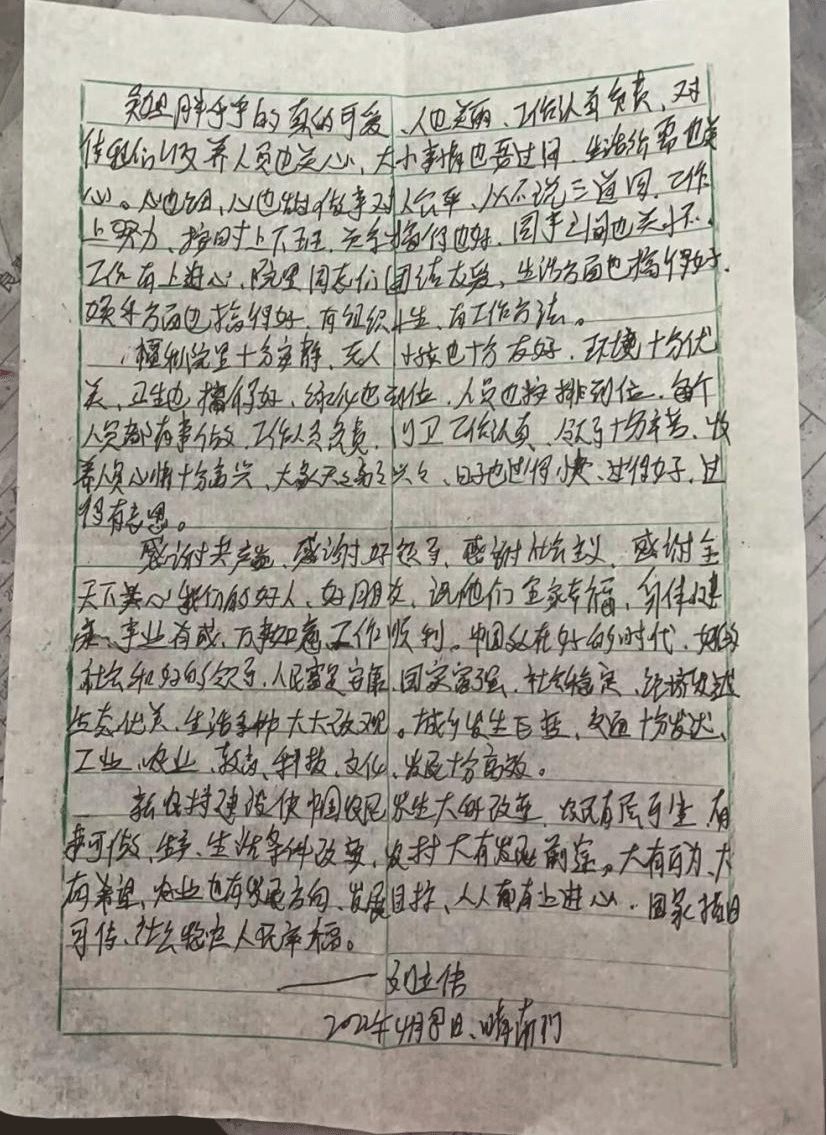 胖乎乎的真的可爱、人也美丽、工作认真负责、对
待我们收养人员也关心、大小事情也要过问、生活所需也关
心。心也细、心也灵、做事对人公平、从不说三道四、工作
上努力、按时上下班、关系搞得也好、同事之间也关怀、
工作有上进心、院里同志们团结友爱、生活方面也搞得好、
娱乐方面也搞得好、有组织性、有工作方法。
福利院里十分安静、无人、十分友好、环境十分优
美、卫生也搞得好、绿化也到位、人员也按排到位、每个
人员都有事做、工作人员负责、门卫工作认真、领导十分辛苦、收
养人员心情十分高兴、大家天天高高兴兴、日子也过得快、过得好、过
得有意思。
感谢共产党、感谢好领导、感谢社会主义、感谢全
天下关心我们的好人、好朋友、祝他们全家幸福、身体健
康、事业有成、万事如意、工作顺利。中国现在好的时代、好的
社会和好的领导、人民安康、国家富强、社会稳定、经济发达
生态优美、生活条件大大改观。城乡发生巨变、交通十分发达、
工业、农业、教育、科技、文化、发展十分高效。
新农村建设使中国农民发生大的改变、农民有房可住、有
事可做、生产、生活条件改变、农村大有发展前途。大有可为、大
有希望、农业也有发展方向、发展目标、人人都有上进心、国家指日
可待、社会稳定人民幸福。
——刘立伟
2022年4月 日、晴南门